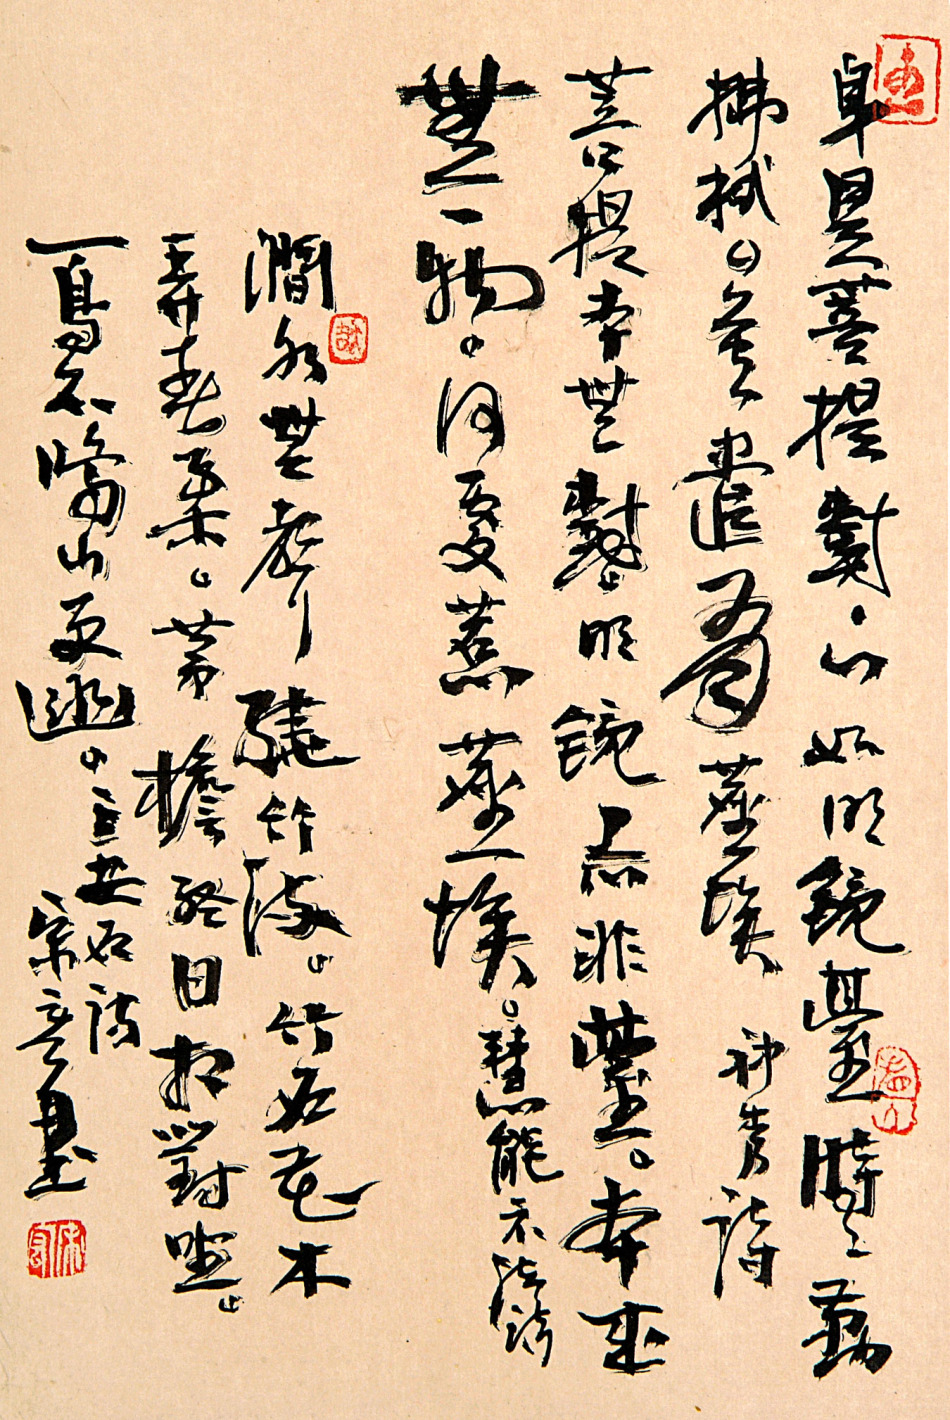 身是菩提樹、心如明鏡臺 時々勤
拂拭。莫遣有塵埃 神秀詩
菩提本無樹。明鏡亦非臺。本來
無一物。何處惹塵埃。慧能示法詩
澗水無聲繞竹流。竹西花木
弄春柔。茅檐終日相對坐。
一鳥不啼山更幽。王安石詩
宗 書